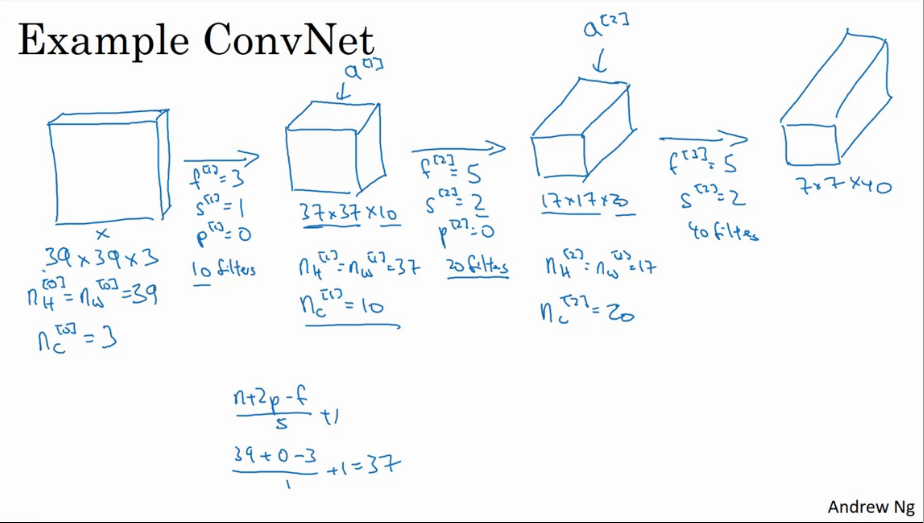 Example ConvNet
a^[1]
a^[2]
x
39×39×3
n_H^[0] = n_W^[0] = 39
n_C^[0] = 3
f^[1] = 3
s^[1] = 1
p^[1] = 0
10 filters
37×37×10
n_H^[1] = n_W^[1] = 37
n_C^[1] = 10
f^[2] = 5
s^[2] = 2
p^[2] = 0
20 filters
17×17×20
n_H^[2] = n_W^[2] = 17
n_C^[2] = 20
f^[3] = 5
s^[2] = 2
40 filters
7×7×40
n+2p-f
s
+1
39+0-3
1
+1=37
Andrew Ng